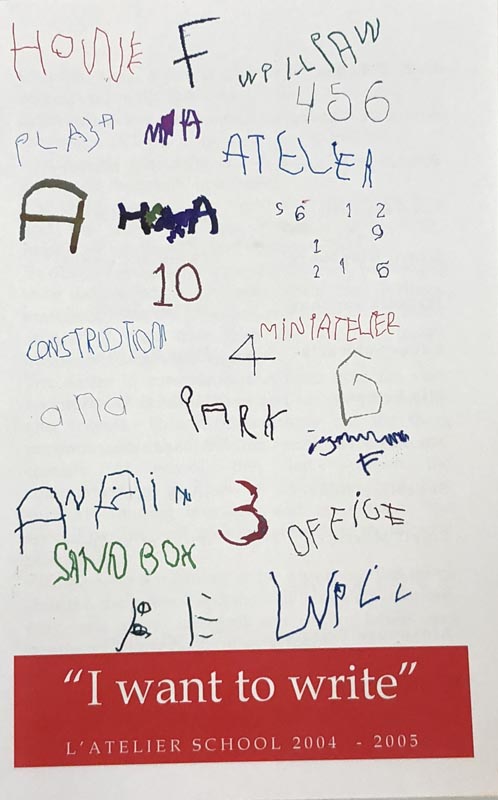 HOWE F WPILLPAW
456
PLAZA MIA
ATELER
A
S 6 1 2
9
1
2 1 6
10
CONSTRUDTION
4
MINIATELIER
ana PARK 6
F
ANFAIN 3
OFFICE
SANDBOX
E WPLL
"I want to write"
L'ATELIER SCHOOL 2004 - 2005